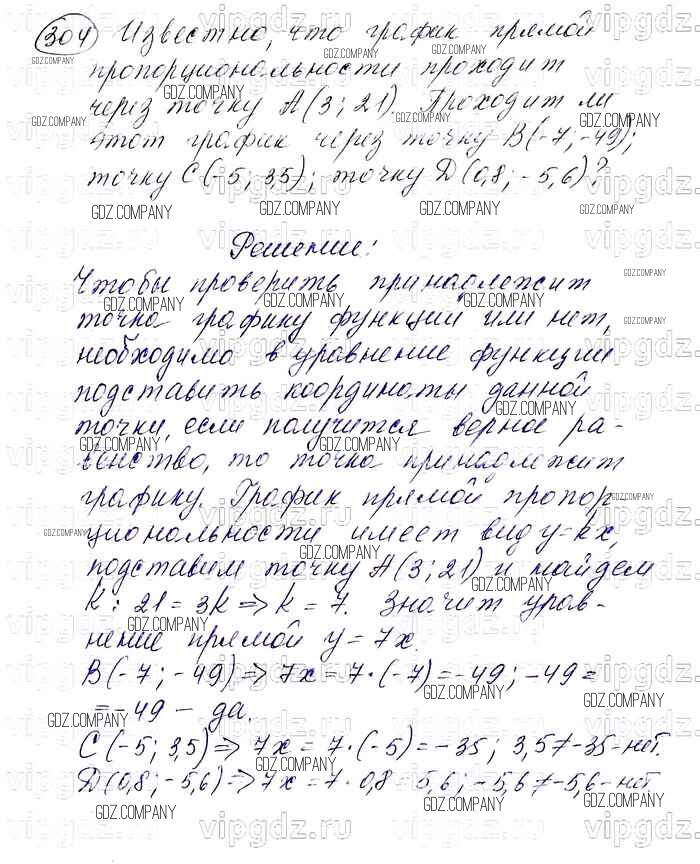 304 Известно, что график прямой
пропорциональности проходит
через точку A(3;21). Проходит ли
этот график через точку B(-7;-49);
точку C(-5; 3,5); точку D(0,8; -5,6)?
Решение:
Чтобы проверить принадлежит
точка графику функции или нет,
необходимо в уравнение функции
подставить координаты данной
точки, если получится верное ра-
венство, то точка принадлежит
графику. График прямой пропор-
циональности имеет вид y=kx,
подставим точку A(3;21) и найдем
k: 21=3k=>k=7. Значит урав-
нение прямой y=7x.
B(-7;-49)=>7x=7·(-7)=-49; -49=
=-49 - да.
C(-5; 3,5)=>7x=7·(-5)=-35; 3,5≠-35-нет.
D(0,8;-5,6)=>7x=7·0,8=5,6; -5,6≠-5,6-нет.
GDZ.COMPANY
vipgdz.ru